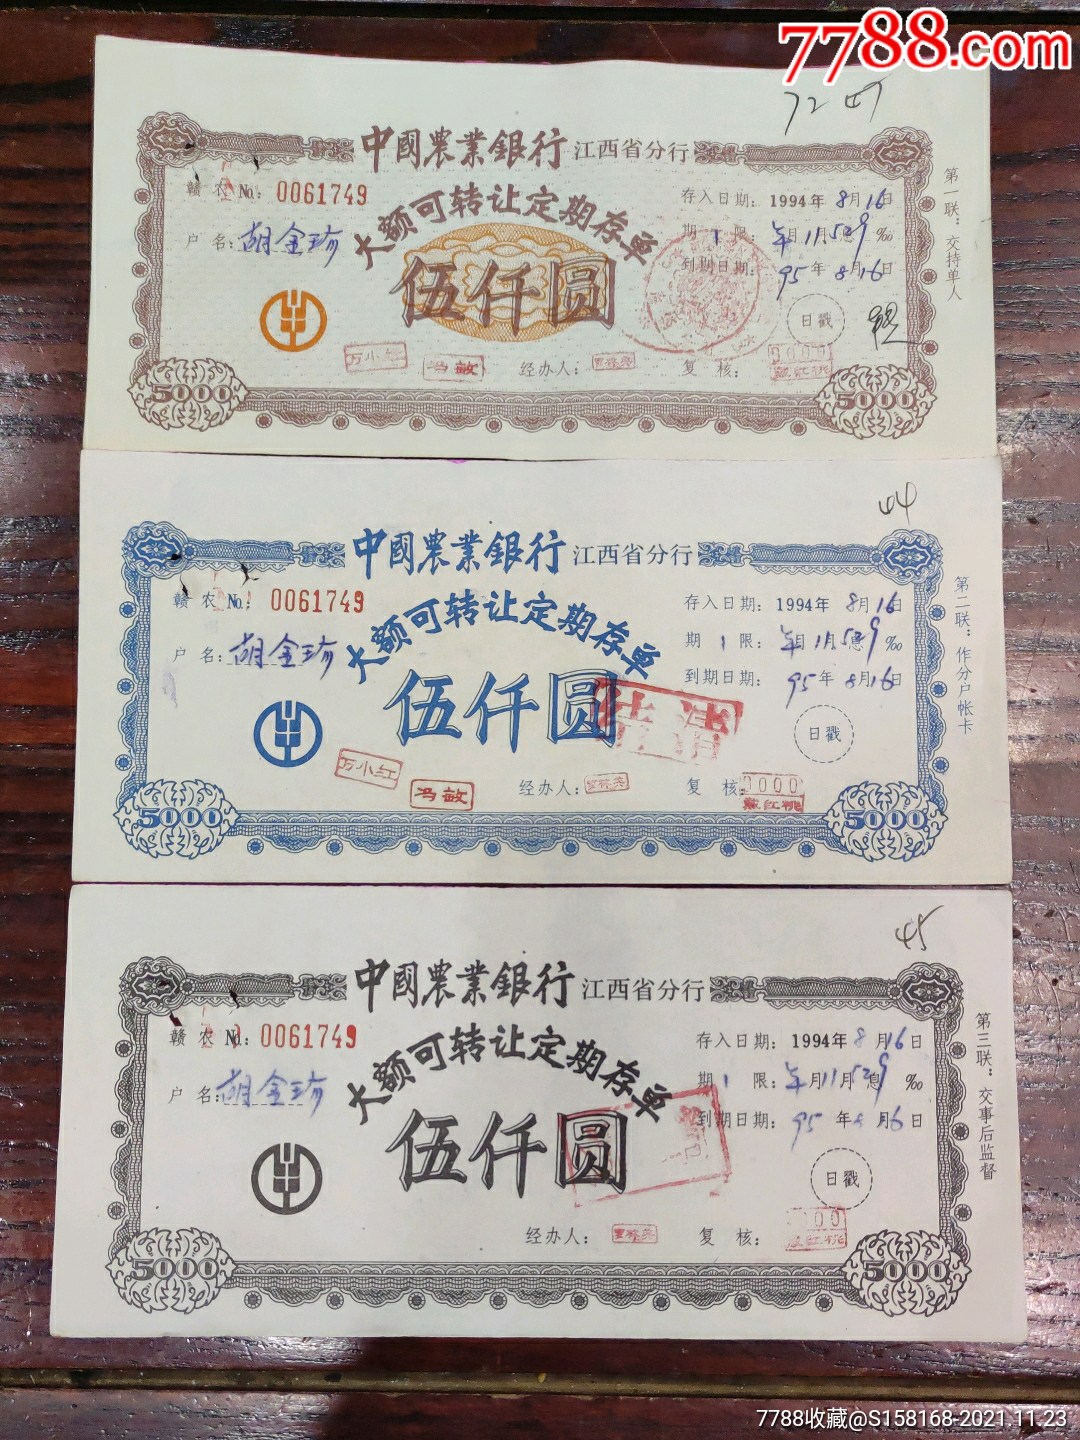 7788.com
中國農業銀行 江西省分行
赣农 No: 0061749
大额可转让定期存单
存入日期: 1994年 8月16日
户名: 胡金
期 1 限: 年
到期日期: 95年 8月16日
伍仟圆
日戳
万小红
冯敏
经办人:
复核:
5000
5000
第一联:交持单人
44
中國農業銀行 江西省分行
赣农 No: 0061749
大额可转让定期存单
存入日期: 1994年 8月16日
户名: 胡金
期 1 限: 年
到期日期: 95年 8月16日
伍仟圆
结清
日戳
万小红
冯敏
经办人:
复核:
0000
5000
5000
第二联:作分户帐卡
45
中國農業銀行 江西省分行
赣农 No: 0061749
大额可转让定期存单
存入日期: 1994年 8月16日
户名: 胡金
期 1 限: 年
到期日期: 95年
伍仟圆
日戳
经办人:
复核:
5000
5000
第三联:交事后监督
7788收藏@S158168-2021.11.23